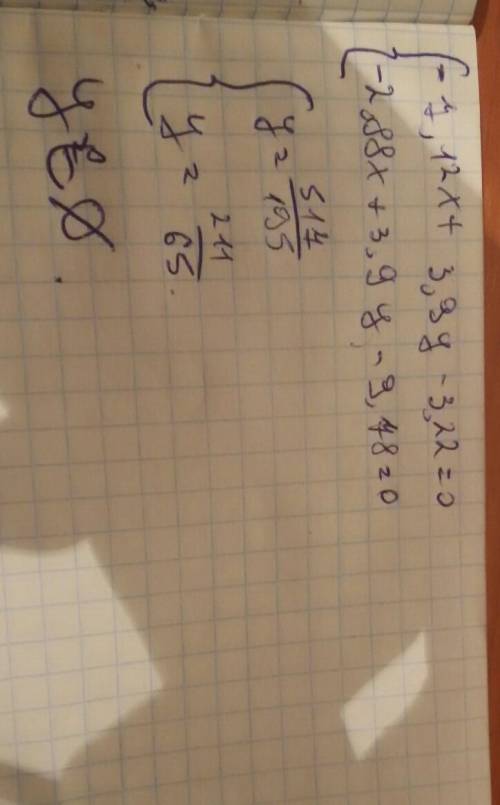 { -7,12x + 3,9y - 3,22 = 0
{ -2,88x + 3,9y - 9,78 = 0
{ y = 517/195
{ y = 211/65.
y ∈ Ø.